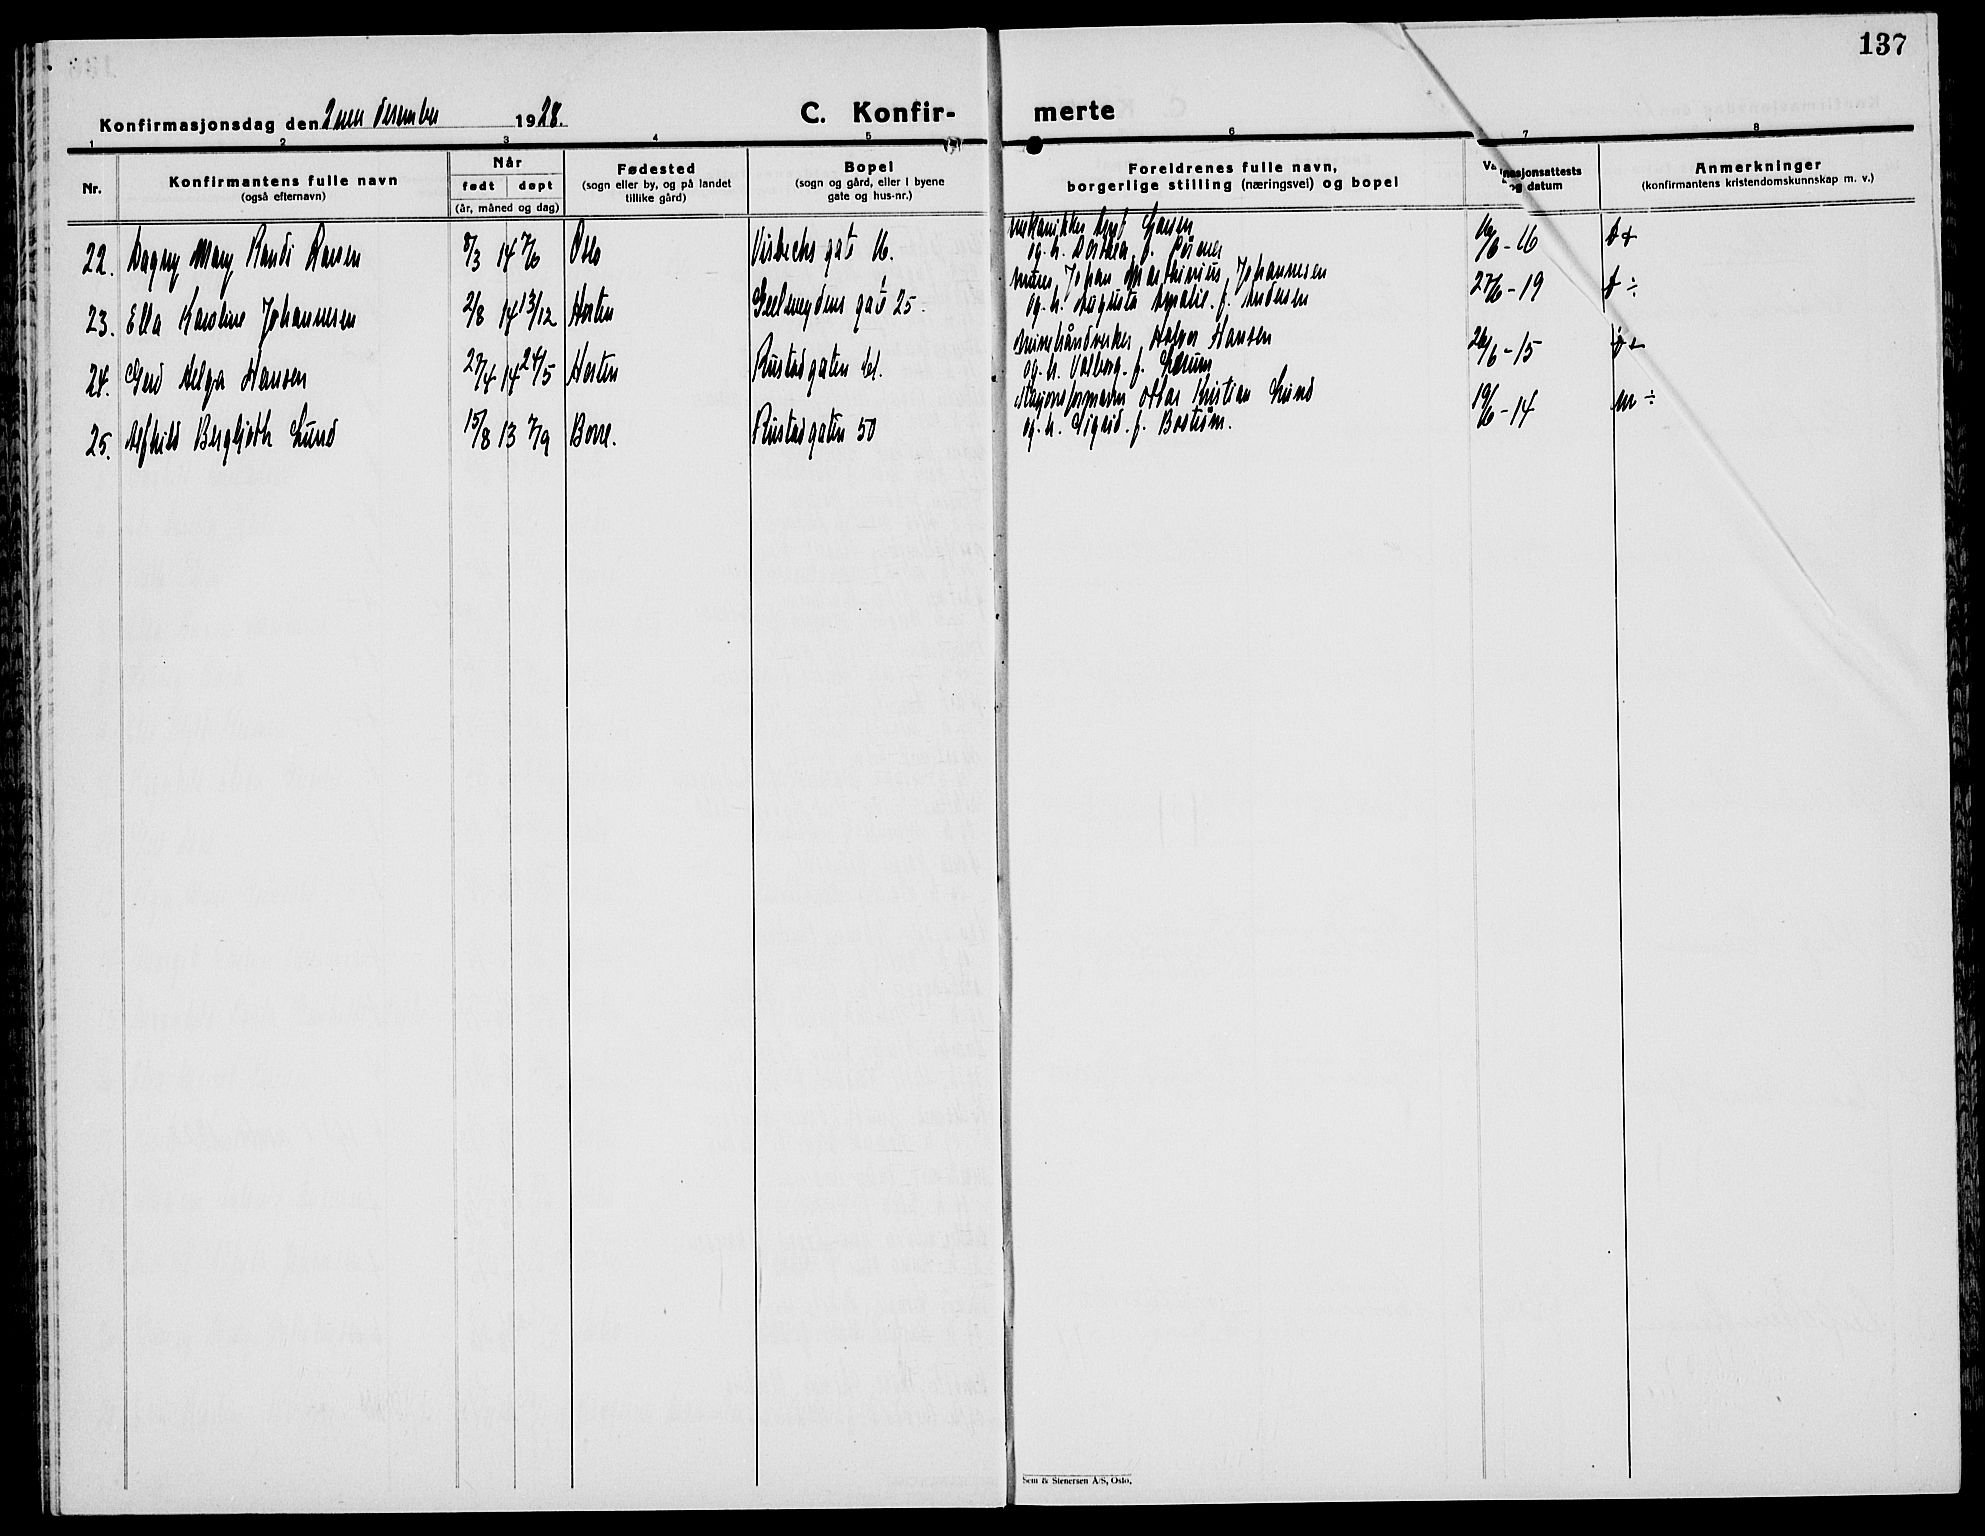 137
Konfirmasjonsdag den 2nen desember 1928.
C. Konfir- merte
1 2 3 4 5 6 7 8
Nr.
Konfirmantens fulle navn
(også efternavn)
Når
født døpt
(år, måned og dag)
Fødested
(sogn eller by, og på landet
tillike gård)
Bopel
(sogn og gård, eller i byene
gate og hus-nr.)
Foreldrenes fulle navn,
borgerlige stilling (næringsvei) og bopel
nasjonsattests
og datum
Anmerkninger
(konfirmantens kristendomskunnskap m. v.)
22. Dagny Mary Randi Larsen 8/3 14 7/6 Oslo gate 16. Larsen 16/6 - 16
og h. f.
23. Ella Karoline Johannesen 2/8 14 13/12 Horten Geelmeydens gate 25. Johan Johannesen 27/6 - 19 ÷
og h. Augusta Amalie f. Andersen
24. Gerd Helga Hansen 27/4 14 24/5 Horten Rustadgaten 61. minehåndverker Halvor Hansen 26/6 - 15
og h. Valborg f.
25. Alfhild Bergljoth Lund 15/8 13 7/9 Borre. Rustadgaten 50 Ottar Kristian Lund 19/6 - 14 m ÷
og h. Sigrid f. Bostrøm.
Sem & Stenersen A/S, Oslo.